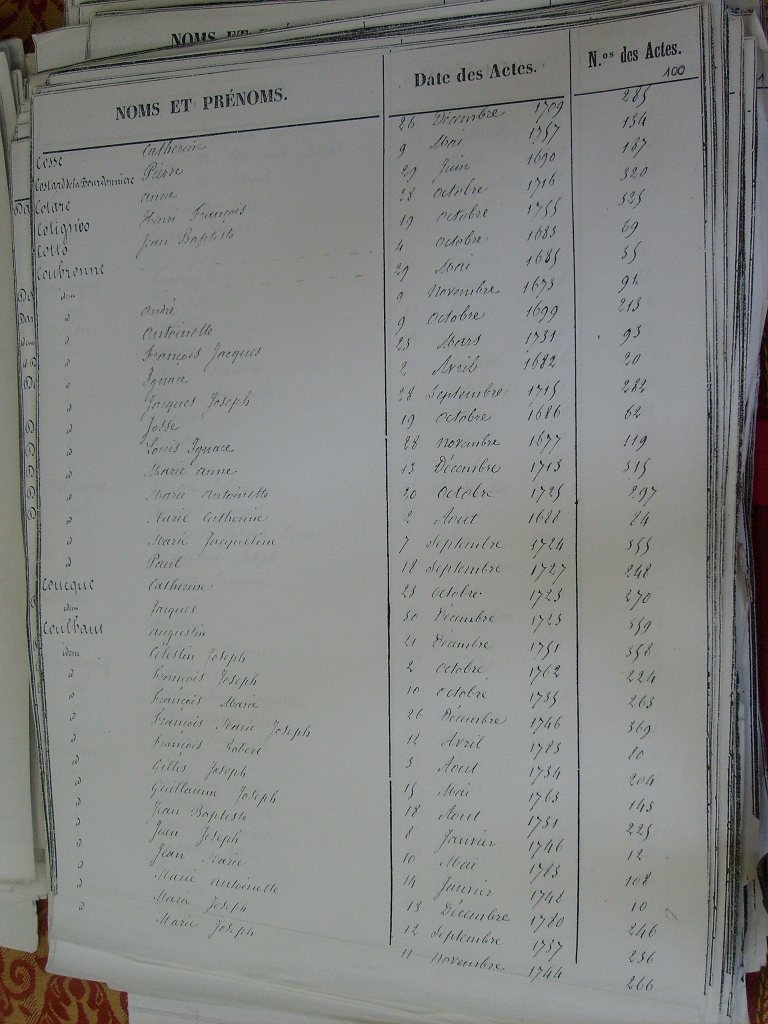 NOMS ET PRÉNOMS. Date des Actes. N.os des Actes.
100
Cosse Catherine 26 Décembre 1709 285
Costard de la Bourdonniere Pierre 9 Mai 1757 134
Cotare anne 29 Juin 1690 187
Cotignies Henri François 28 Octobre 1716 320
Cotto Jean Baptiste 19 Octobre 1755 325
Coubronne 4 Octobre 1683 69
idem 29 Mai 1685 35
d André 9 Novembre 1673 91
d Antoinette 9 Octobre 1699 213
d François Jacques 23 Mars 1731 93
d Ignace 2 Avril 1682 20
d Jacques Joseph 28 Septembre 1715 282
d Josse 19 Octobre 1686 62
d Louis Ignace 28 Novembre 1677 119
d Marie anne 13 Décembre 1713 315
d Marie Antoinette 20 Octobre 1725 297
d Marie Catherine 2 Aout 1688 84
d Marie Jacqueline 7 Septembre 1724 355
d Paul 18 Septembre 1727 248
Coucque Catherine 23 Octobre 1723 270
idem Jacques 30 Décembre 1723 359
Coulhaut augustin 21 Décembre 1751 358
idem Célestin Joseph 2 Octobre 1762 224
d François Joseph 10 Octobre 1735 263
d François Marie 26 Décembre 1746 369
d François Marie Joseph 12 Avril 1783 80
d François Robert 3 Aout 1734 204
d Gilles Joseph 15 Mai 1763 143
d Guillaume Joseph 18 Aout 1751 225
d Jean Baptiste 8 Janvier 1746 12
d Jean Joseph 10 Mai 1783 108
d Jean Marie 14 Janvier 1742 10
d Marie antoinette 13 Décembre 1780 246
d Marie Joseph 12 Septembre 1737 236
Marie Joseph 11 Novembre 1744 266